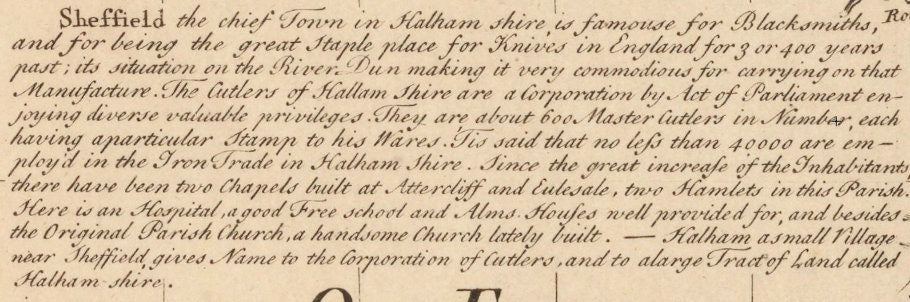 Sheffield the chief Town in Halham shire, is famouse for Blacksmiths,
Ro
and for being the great Staple place for Knives in England for 3 or 400 years
past; its situation on the River Dun making it very commodious for carrying on that
Manufacture. The Cutlers of Hallam shire are a Corporation by Act of Parliament en-
joying diverse valuable privileges. They are about 600 Master Cutlers in Number, each
having a particular Stamp to his Wares. Tis said that no leſs than 40000 are em-
ploy'd in the Iron Trade in Halham Shire. Since the great increaſe of the Inhabitants,
there have been two Chapels built at Attercliff and Eulesale, two Hamlets in this Parish.
Here is an Hospital, a good Free school and Alms-Houſes well provided for, and besides
the Original Parish Church, a handsome Church lately built. — Halham a small Village
near Sheffield, gives Name to the Corporation of Cutlers, and to a large Tract of Land called
Halham-shire.